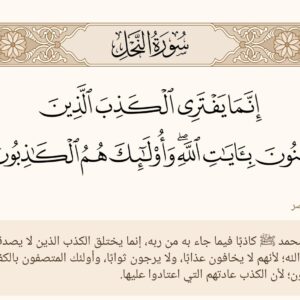 سُورَةُ النَّحْلِ
إِنَّمَا يَفْتَرِي ٱلْكَذِبَ ٱلَّذِينَ
بِـَٔايَٰتِ ٱللَّهِۖ وَأُوْلَٰٓئِكَ هُمُ ٱلْكَٰذِبُونَ
محمد ﷺ كاذبًا فيما جاء به من ربه، إنما يختلق الكذب الذين لا
الله؛ لأنهم لا يخافون عذابًا، ولا يرجون ثوابًا، وأولئك المتصفون
لأن الكذب عادتهم التي اعتادوا عليها.